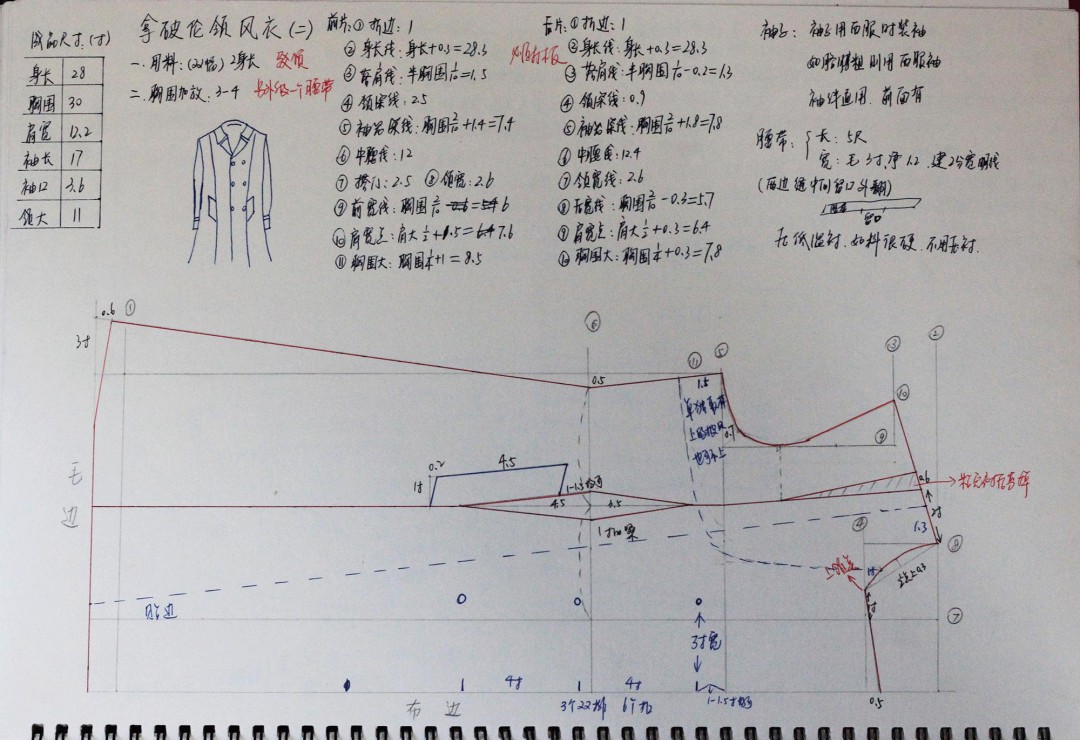 成品尺寸:(寸)
身长 28
胸围 30
肩宽 12.2
袖长 17
袖口 3.6
领大 11
拿破伦领风衣(二)
一.用料:(双幅)2身长 驳领
二.胸围加放:3-4 另外级一个腰带
前片:① 折边:1
② 身长线:身长+0.3=28.3
③ 落肩线:半胸围1/10=1.5
④ 领深线:2.5
⑤ 袖笼深线:胸围2/10+1.4=7.4
⑥ 中腰线:12
⑦ 搭门:2.5 ⑧ 领宽:2.6
⑨ 前宽线:胸围2/10 6
⑩ 肩宽点:肩大1/2+1.5=7.6
⑪ 胸围大:胸围1/4+1=8.5
后片:① 折边:1
②身长线:身长+0.3=28.3
③ 落肩线:半胸围1/10-0.2=1.3
④ 领深线:0.9
⑤ 袖笼深线:胸围2/10+1.8=7.8
⑥ 中腰线:12.4
⑦ 领宽线:2.6
⑧ 后宽线:胸围2/10-0.3=5.7
⑨ 肩宽点:肩大1/2+0.3=6.4
⑩ 胸围大:胸围1/4+0.3=7.8
袖子:袖子用西服时装袖
如胳膊粗则用西服袖
袖绊通用.前面有
腰带:
长:5尺
宽:毛3寸,净1.2.建2分宽明线
(两边缝中间留口外翻)
留口
无低温衬.如料很硬.不用无衬.
0.6 ①
⑥
⑪ ⑤
③ ②
3寸
0.5
1.5
⑩
0.7
⑨
毛
边
0.2
4.5
1寸
1-1.5
4.5
4.5
2.6
1寸
2寸
④
1.3
⑧
上领点
1寸
0.3
贴边
⑦
3寸宽
4寸
4寸
1-1.5寸
0.5
布边
3个22排 6个扣